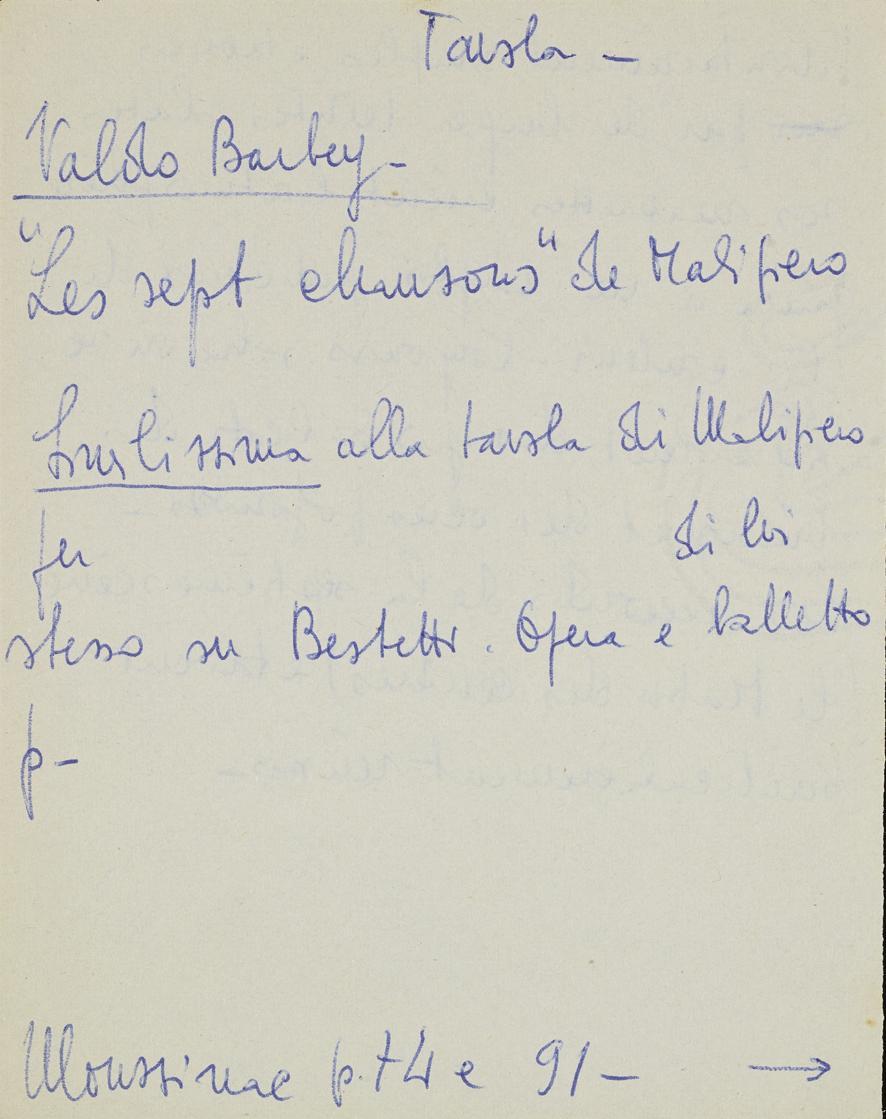 Tavola –
Valdo Barbey –
"Les sept chansons" de Malipiero
Similissima alla tavola di Malipiero
per di lui
stesso su Bestetti. Opera e balletto
p –
Moussinac p. 74 e 91 – →